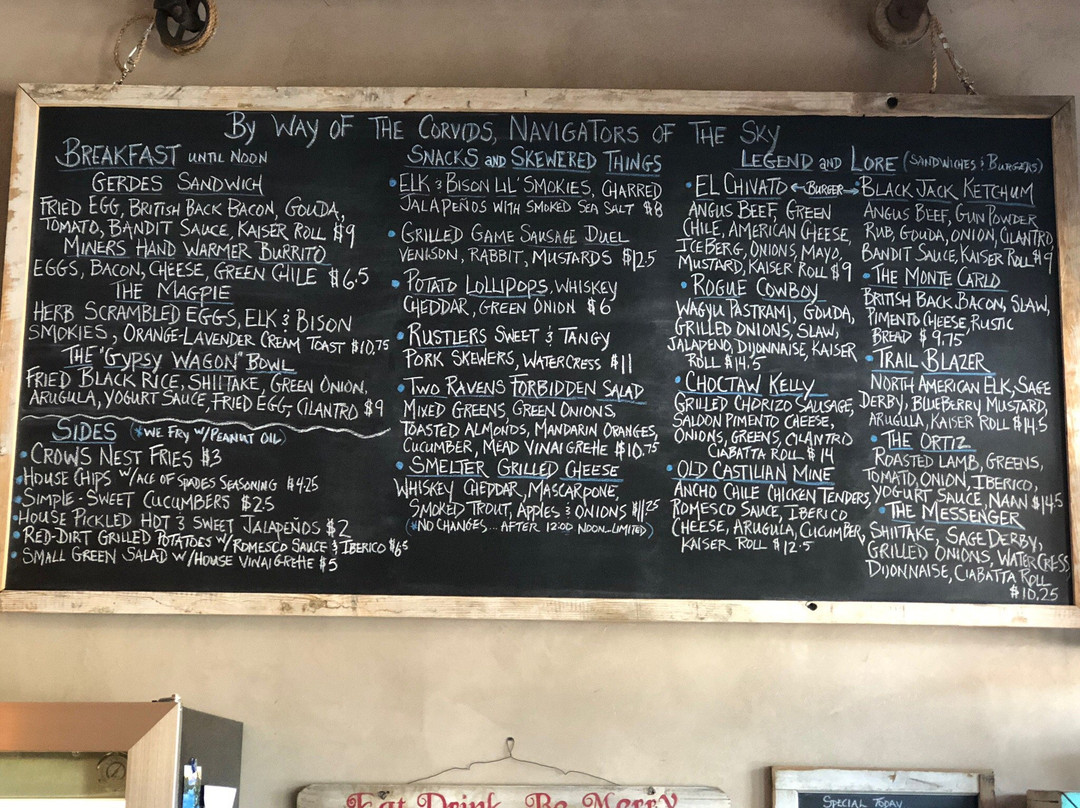 By Way of The Corvids, Navigators of The Sky
Breakfast until Noon
Gerdes Sandwich
Fried Egg, British Back Bacon, Gouda,
Tomato, Bandit Sauce, Kaiser Roll $9
Miners Hand Warmer Burrito
Eggs, Bacon, Cheese, Green Chile $6.5
The Magpie
Herb Scrambled Eggs, Elk & Bison
Smokies, Orange-Lavender Cream Toast $10.75
The "Gypsy Wagon" Bowl
Fried Black Rice, Shiitake, Green Onion,
Arugula, Yogurt Sauce, Fried Egg, Cilantro $9
Sides (*We Fry w/Peanut Oil)
• Crows Nest Fries $3
• House Chips w/Ace of Spades Seasoning $4.25
• Simple-Sweet Cucumbers $2.5
• House Pickled Hot & Sweet Jalapeños $2
• Red-Dirt Grilled Potatoes w/Romesco Sauce & Iberico $6.5
• Small Green Salad w/House Vinaigrette $5
Snacks and Skewered Things
• Elk & Bison Lil' Smokies, Charred
Jalapeños with Smoked Sea Salt $8
• Grilled Game Sausage Duel
Venison, Rabbit, Mustards $12.5
• Potato Lollipops, Whiskey
Cheddar, Green Onion $6
• Rustlers Sweet & Tangy
Pork Skewers, Watercress $11
• Two Ravens Forbidden Salad
Mixed Greens, Green Onions,
Toasted Almonds, Mandarin Oranges,
Cucumber, Mead Vinaigrette $10.75
• Smelter Grilled Cheese
Whiskey Cheddar, Mascarpone,
Smoked Trout, Apples & Onions $11.25
(*No Changes... After 12:00 Noon_Limited)
Legend and Lore (Sandwiches & Burgers)
• El Chivato ←Burger→
Angus Beef, Green
Chile, American Cheese,
Iceberg, Onions, Mayo,
Mustard, Kaiser Roll $9
• Rogue Cowboy
Wagyu Pastrami, Gouda,
Grilled Onions, Slaw,
Jalapeno, Dijonnaise, Kaiser
Roll $14.5
• Choctaw Kelly
Grilled Chorizo Sausage,
Saloon Pimento Cheese,
Onions, Greens, Cilantro
Ciabatta Roll $14
• Old Castilian Mine
Ancho Chile Chicken Tenders,
Romesco Sauce, Iberico
Cheese, Arugula, Cucumber,
Kaiser Roll $12.5
• Black Jack Ketchum
Angus Beef, Gun Powder
Rub, Gouda, Onion, Cilantro,
Bandit Sauce, Kaiser Roll $9
• The Monte Carlo
British Back Bacon, Slaw,
Pimento Cheese, Rustic
Bread $9.75
• Trail Blazer
North American Elk, Sage
Derby, Blueberry Mustard,
Arugula, Kaiser Roll $14.5
• The Ortiz
Roasted Lamb, Greens,
Tomato, Onion, Iberico,
Yogurt Sauce, Naan $14.5
• The Messenger
Shiitake, Sage Derby,
Grilled Onions, Watercress
Dijonnaise, Ciabatta Roll
$10.25
Eat Drink Be Merry
Special Today